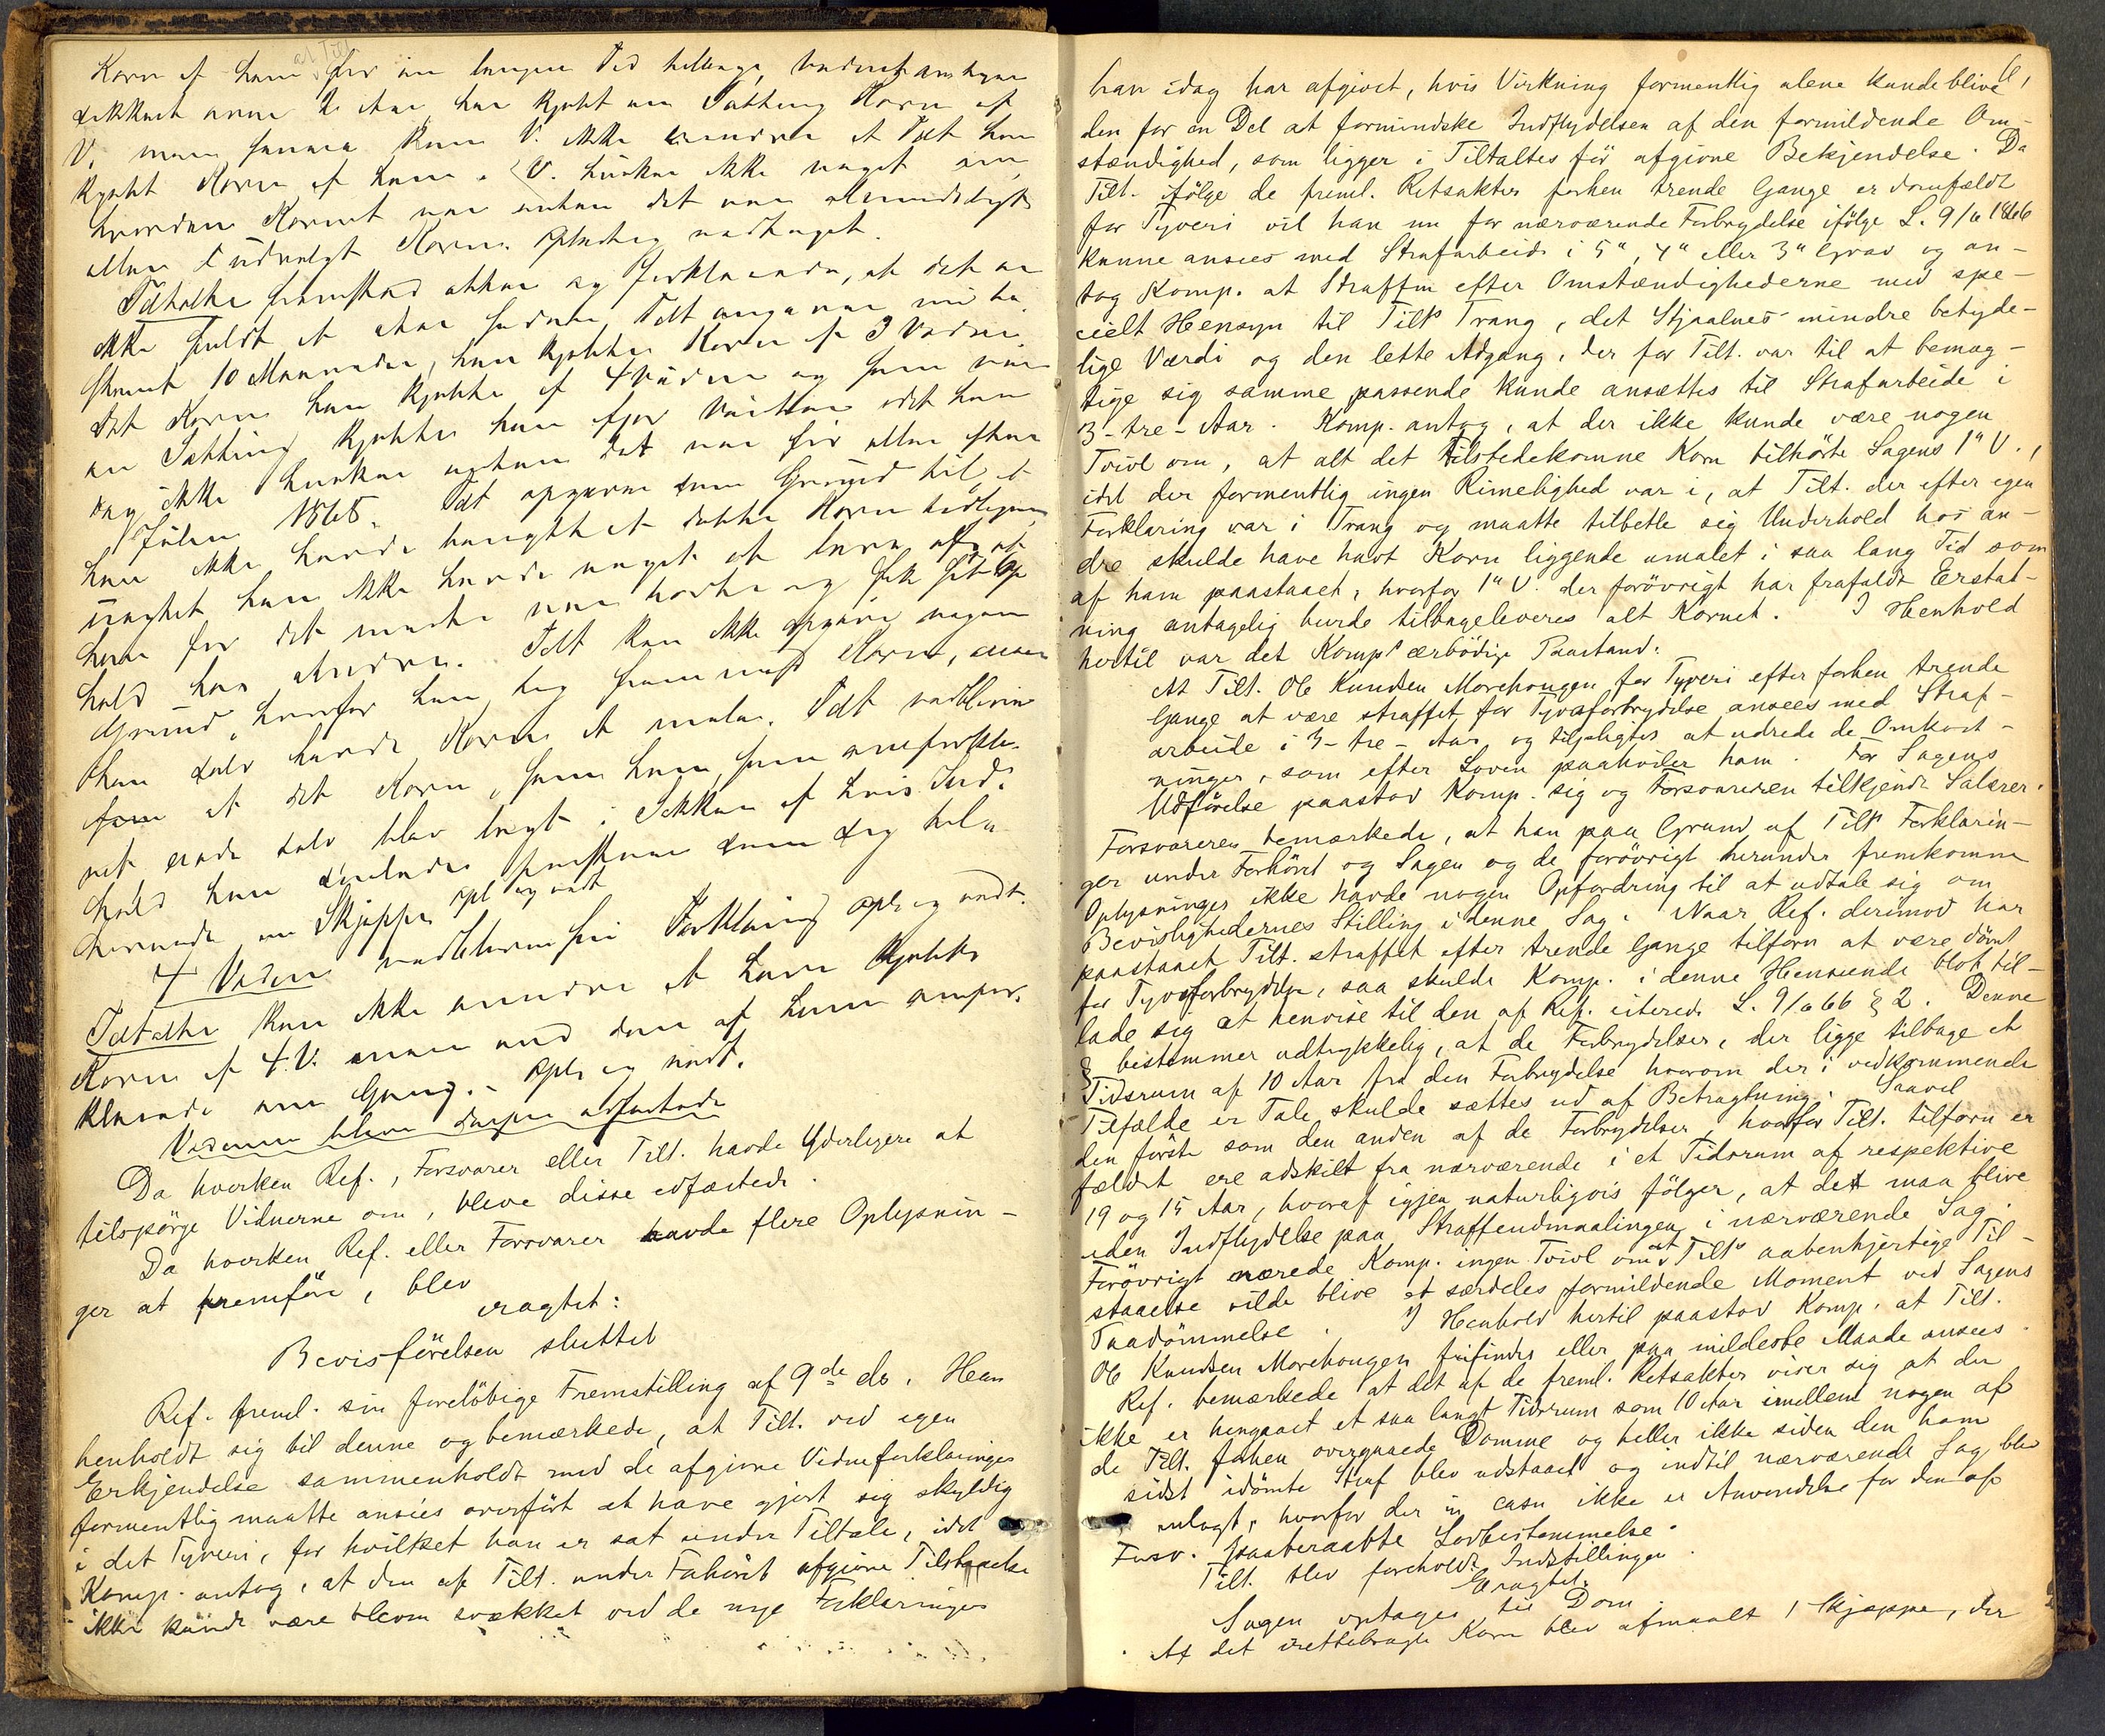 Korn af ham for en længere Tid tilbage,
sikkert over 2 Aar, har kjøbt en Sætting Korn af
V. men senere kan V. ikke erindre at Tilt har
kjøbt Korn af ham. V. husker ikke noget om
hvordan Kornet var enten det var almindeligt
eller udvalgt Korn. Oplæst og vedtaget.
Tiltalte fremstod atter og forklarede, at det er
ikke fuldt et Aar siden Tilt angiver
10 Maaneder, han kjøbte Korn af 3 Vidne.
Det Korn han kjøbte af 4 Vidne og som var
en Sætting kjøbte han ifjor Vinter idet han
dog ikke husker enten det var før eller efter
Julen 1868. Tilt opgiver som Grund til at
han ikke havde benyttet dette Korn tidligere
uagtet han ikke havde noget at leve af, at
han for det meste var borte og fik sit Op-
hold hos Andre. Tilt kan ikke opgive nogen
Grund, hvorfor han tog fremmed Korn, naar
han selv havde Korn at male. Tilt vedbliver
at det Korn, som han, som
selv blev bragt i Sækken af hvis Ind-
hold han
en Skjeppe opl og vedt
4 Vidne vedblev sin Forklaring opl. og vedt.
Tiltalte kan ikke erindre at have kjøbt
Korn af 4. V. mere end den af ham
en Gang. - Opl. og vedt.
Vidnerne bleve derpaa edfæstede
Da hverken Ref., Forsvarer eller Tilt. havde Yderligere at
tilspørge Vidnerne om, bleve disse edfæstede.
Da hverken Ref. eller Forsvarer havde flere Oplysnin-
ger at fremföre, blev
eragtet:
Bevisførelsen sluttet
Ref. freml. sin foreløbige Fremstilling af 9de ds. Han
henholdt sig til denne og bemærkede, at Tilt. ved egen
Erkjendelse sammenholdt med de afgivne Vidneforklaringer
formentlig maatte ansees overført at have gjort sig skyldig
i det Tyveri, for hvilket han er sat under Tiltale, idet
Komp. antog, at den af Tilt. under Forhöret afgivne Tilstaaelse
ikke kunde være bleven svækket ved de nye Forklaringer
han idag har afgivet, hvis Virkning formentlig alene kunde blive
den for en Del at formindske Indflydelsen af den formildende Om-
stændighed, som ligger i Tiltaltes för afgivne Bekjendelse. Da
Tilt. ifölge de freml. Retsakter forhen trende Gange er domfældt
for Tyveri vil han nu for nærværende Forbrydelse ifölge L. 9/6 1866
kunne ansees med Strafarbeide i 5", 4" eller 3" Grad og an-
tog Komp. at Straffen efter Omstændighederne med spe-
cielt Hensyn til Tilts Trang, det Stjaalnes mindre betyde-
lige Værdi og den lette Adgang, der for Tilt. var til at bemæg-
tige sig samme passende kunde ansættes til Strafarbeide i
3-tre-Aar. Komp. antog, at der ikke kunde være nogen
Tvivl om, at alt det Tilstedekomne Korn tilhörte Sagens 1" V.,
idet der formentlig ingen Rimelighed var i, at Tilt. der efter egen
Forklaring var i Trang og maatte tilbetle sig Underhold hos an-
dre skulde have havt Korn liggende umalet i saa lang Tid som
af ham paastaaet, hvorfor 1" V. der forövrigt har frafaldt Erstat-
ning antagelig burde tilbageleveres alt Kornet. I Henhold
hertil var det Komps ærbödige Paastand:
At Tilt. Ole Knudsen Morehougen for Tyveri efter forhen trende
Gange at være straffet for Tyvsforbrydelse ansees med Straf-
arbeide i 3-tre-Aar og tilpligtes at udrede de Omkost-
ninger, som efter Loven paahviler ham. For Sagens
Udförelse paastod Komp. sig og Forsvareren tilkjendt Salærer.
Forsvareren bemærkede, at han paa Grund af Tilts Forklarin-
ger under Forhöret og Sagen og de forövrigt herunder fremkomne
Oplysninger ikke havde nogen Opfordring til at udtale sig om
Bevislighedernes Stilling i denne Sag. Naar Ref. derimod har
paastaaet Tilt. straffet efter trende Gange tilforn at være dömt
for Tyvsforbrydelse, saa skulde Komp. i denne Henseende blot til-
lade sig at henvise til den af Ref. citerede L. 9/6 66 § 2. Denne
§ bestemmer udtrykkelig, at de Forbrydelser, der ligge tilbage et
Tidsrum af 10 Aar fra den Forbrydelse hvorom der i vedkommende
Tilfælde er Tale skulde sættes ud af Betragtning. Saavel
den förste som den anden af de Forbrydelser, hvorfor Tilt. tilforn er
fældet ere adskilt fra nærværende i et Tidsrum af respektive
19 og 15 Aar, hvoraf igjen naturligvis fölger, at det maa blive
uden Indflydelse paa Straffeudmaalingen i nærværende Sag.
Forövrigt nærede Komp. ingen Tvivl om at Tilts aabenhjertige Til-
staaelse vilde blive et særdeles formildende Moment ved Sagens
Paadömmelse. I Henhold hertil paastod Komp. at Tilt.
Ole Knudsen Morehougen frifindes eller paa mildeste Maade ansees.
Ref. bemærkede at det af de freml. Retsakter viser sig at der
ikke er hengaaet et saa langt Tidsrum som 10 Aar imellem nogen af
de Tilt. forhen overgaaede Domme og heller ikke siden den ham
sidst idömte Straf blev udstaaet og indtil nærværende Sag blev
anlagt, hvorfor der in casu ikke er Anvendelse for den af
Forsv. paaberaabte Lovbestemmelse.
Tilt. blev foreholdt Indstillingen.
Eragtet:
Sagen optages til Dom
Af det irettebragte Korn blev afmaalt 1 Skjæppe, der